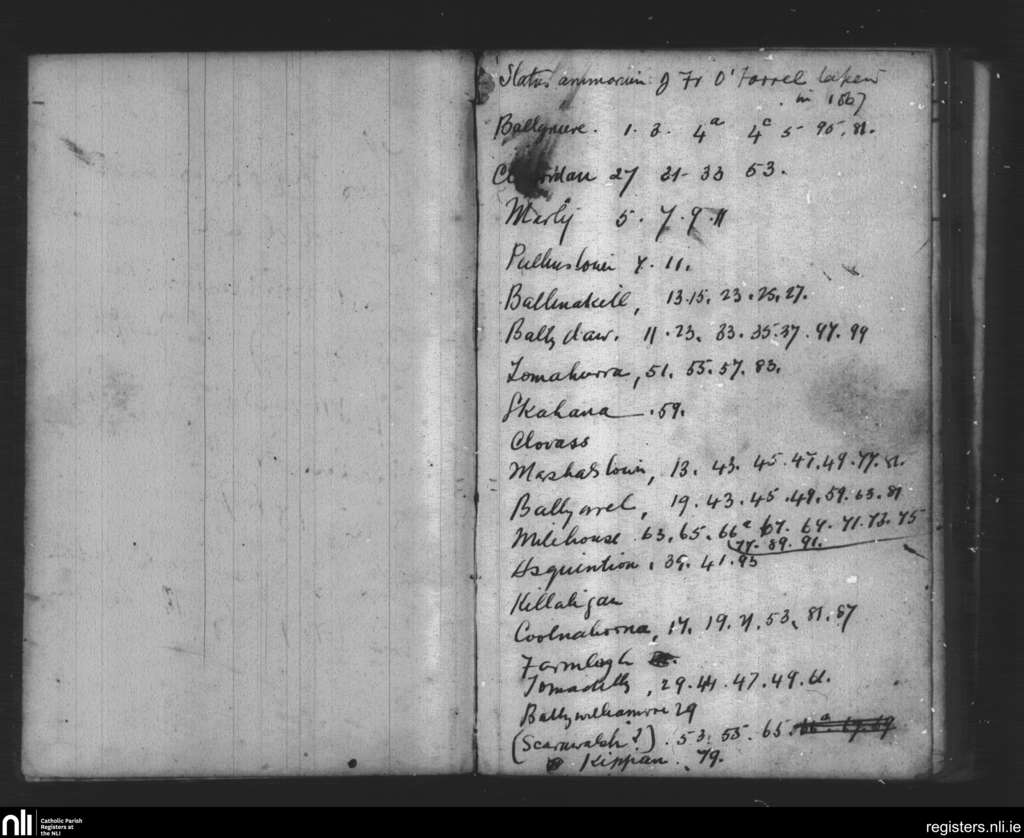 Status animarum of Fr O'Farrel taken
in 1867
Ballymure. 1. 3. 4a 4c 5 95. 81.
27 31- 33 53.
Marly 5. 7. 9. 11
7. 11.
Ballinakill, 13.15. 23. 25. 27.
Ballydaw. 11. 23. 33. 35.37. 97. 99
Tomahurra, 51. 55. 57. 83.
Skahana . 59.
Clovass
Marshalstown, 13. 43. 45. 47. 49. 77.
Ballyorrel, 19. 43. 45. 49. 59. 63. 81
Milehouse 63. 65. 66a 67. 71. 73. 75
77. 89. 91.
Asquintion. 39. 41. 93
Killaligan
Coolnahorna, 17. 19. 21. 53. 81. 87
Farmlogh
29. 47. 49.
Ballywilliamroe 29
(Scarawalsh?). 53. 55. 65. 66a. 67. 69
Kippan. 79.
nli
Catholic Parish
Registers at
the NLI
registers.nli.ie